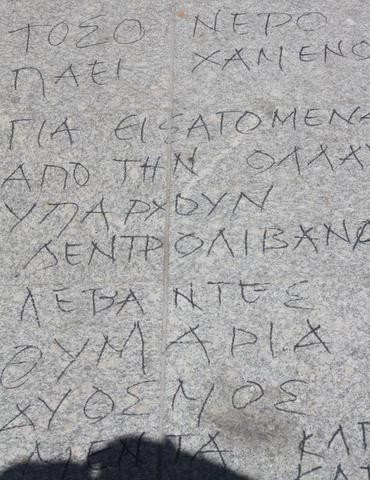 ΤΟΣΟ ΝΕΡΟ
ΠΑΕΙ ΧΑΜΕΝΟ
ΓΙΑ ΕΙΣΑΓΟΜΕΝΑ
ΑΠΟ ΤΗΝ
ΥΠΑΡΧΟΥΝ
ΔΕΝΤΡΟΛΙΒΑΝΑ
ΛΕΒΑΝΤΕΣ
ΘΥΜΑΡΙΑ
ΔΥΟΣΜΟΣ
ΜΕΝΤΑ ΚΛΠ